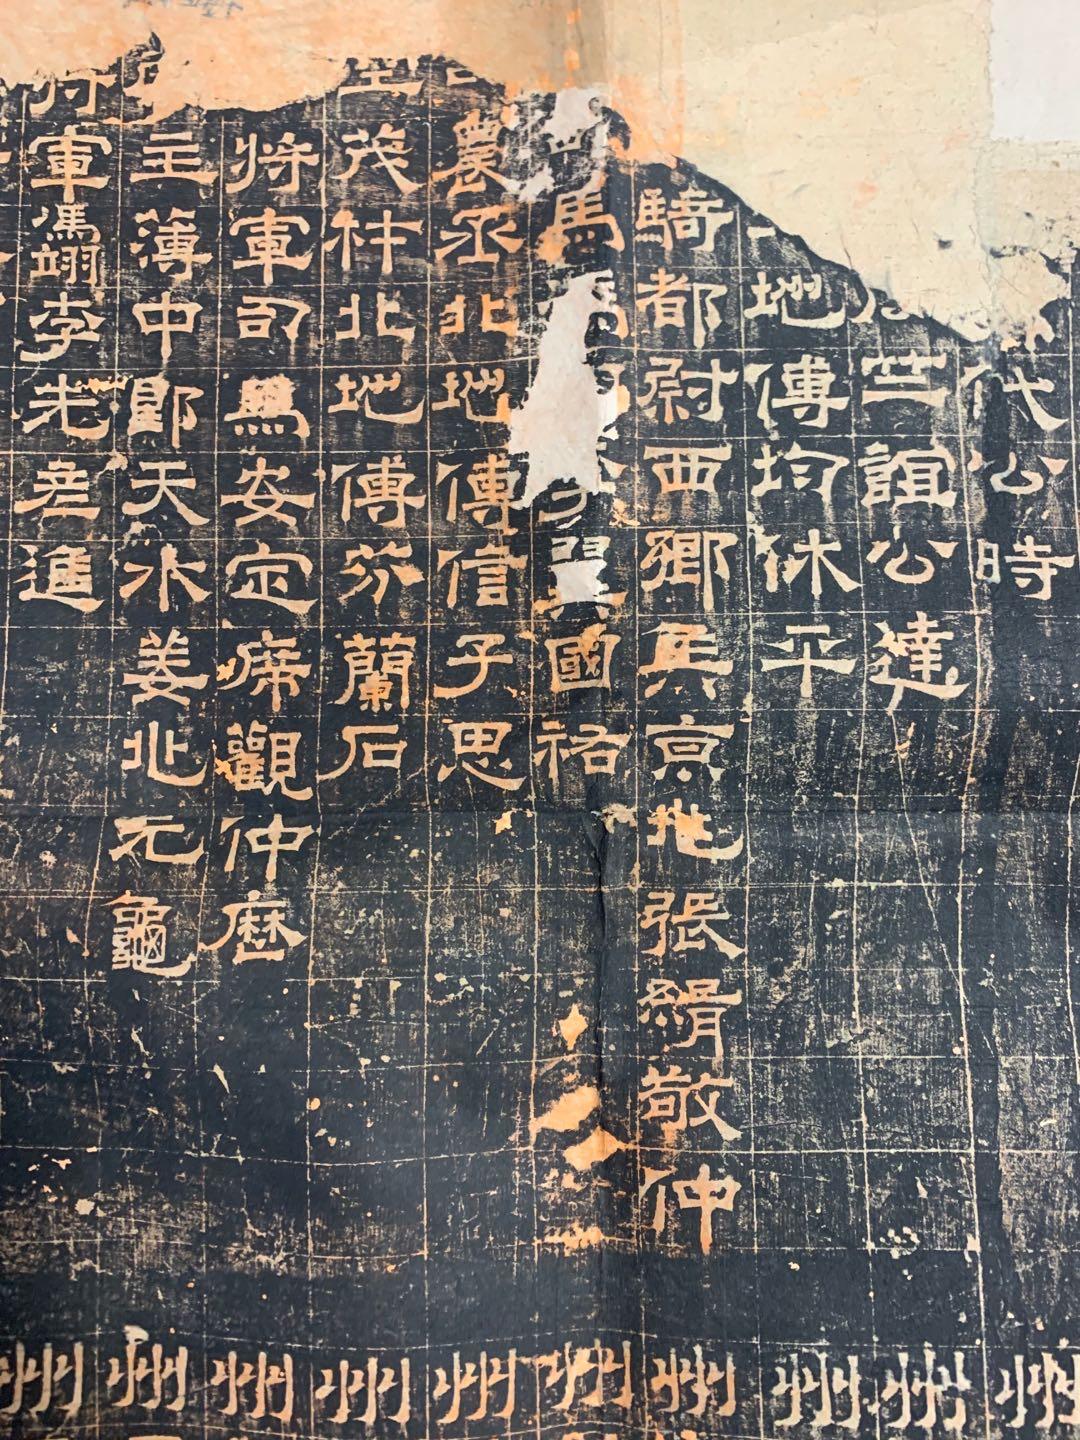 代公時
竺誼公達
地傅均休平
騎都尉西鄉矦京地張緝敬仲
馬 國祐
農丞北地傅信子思
茂材北地傅芬蘭石
將軍司馬安定席觀仲歷
主薄中郎天水姜兆元龜
軍馮翊李先彥進
州州州州州州州州州州